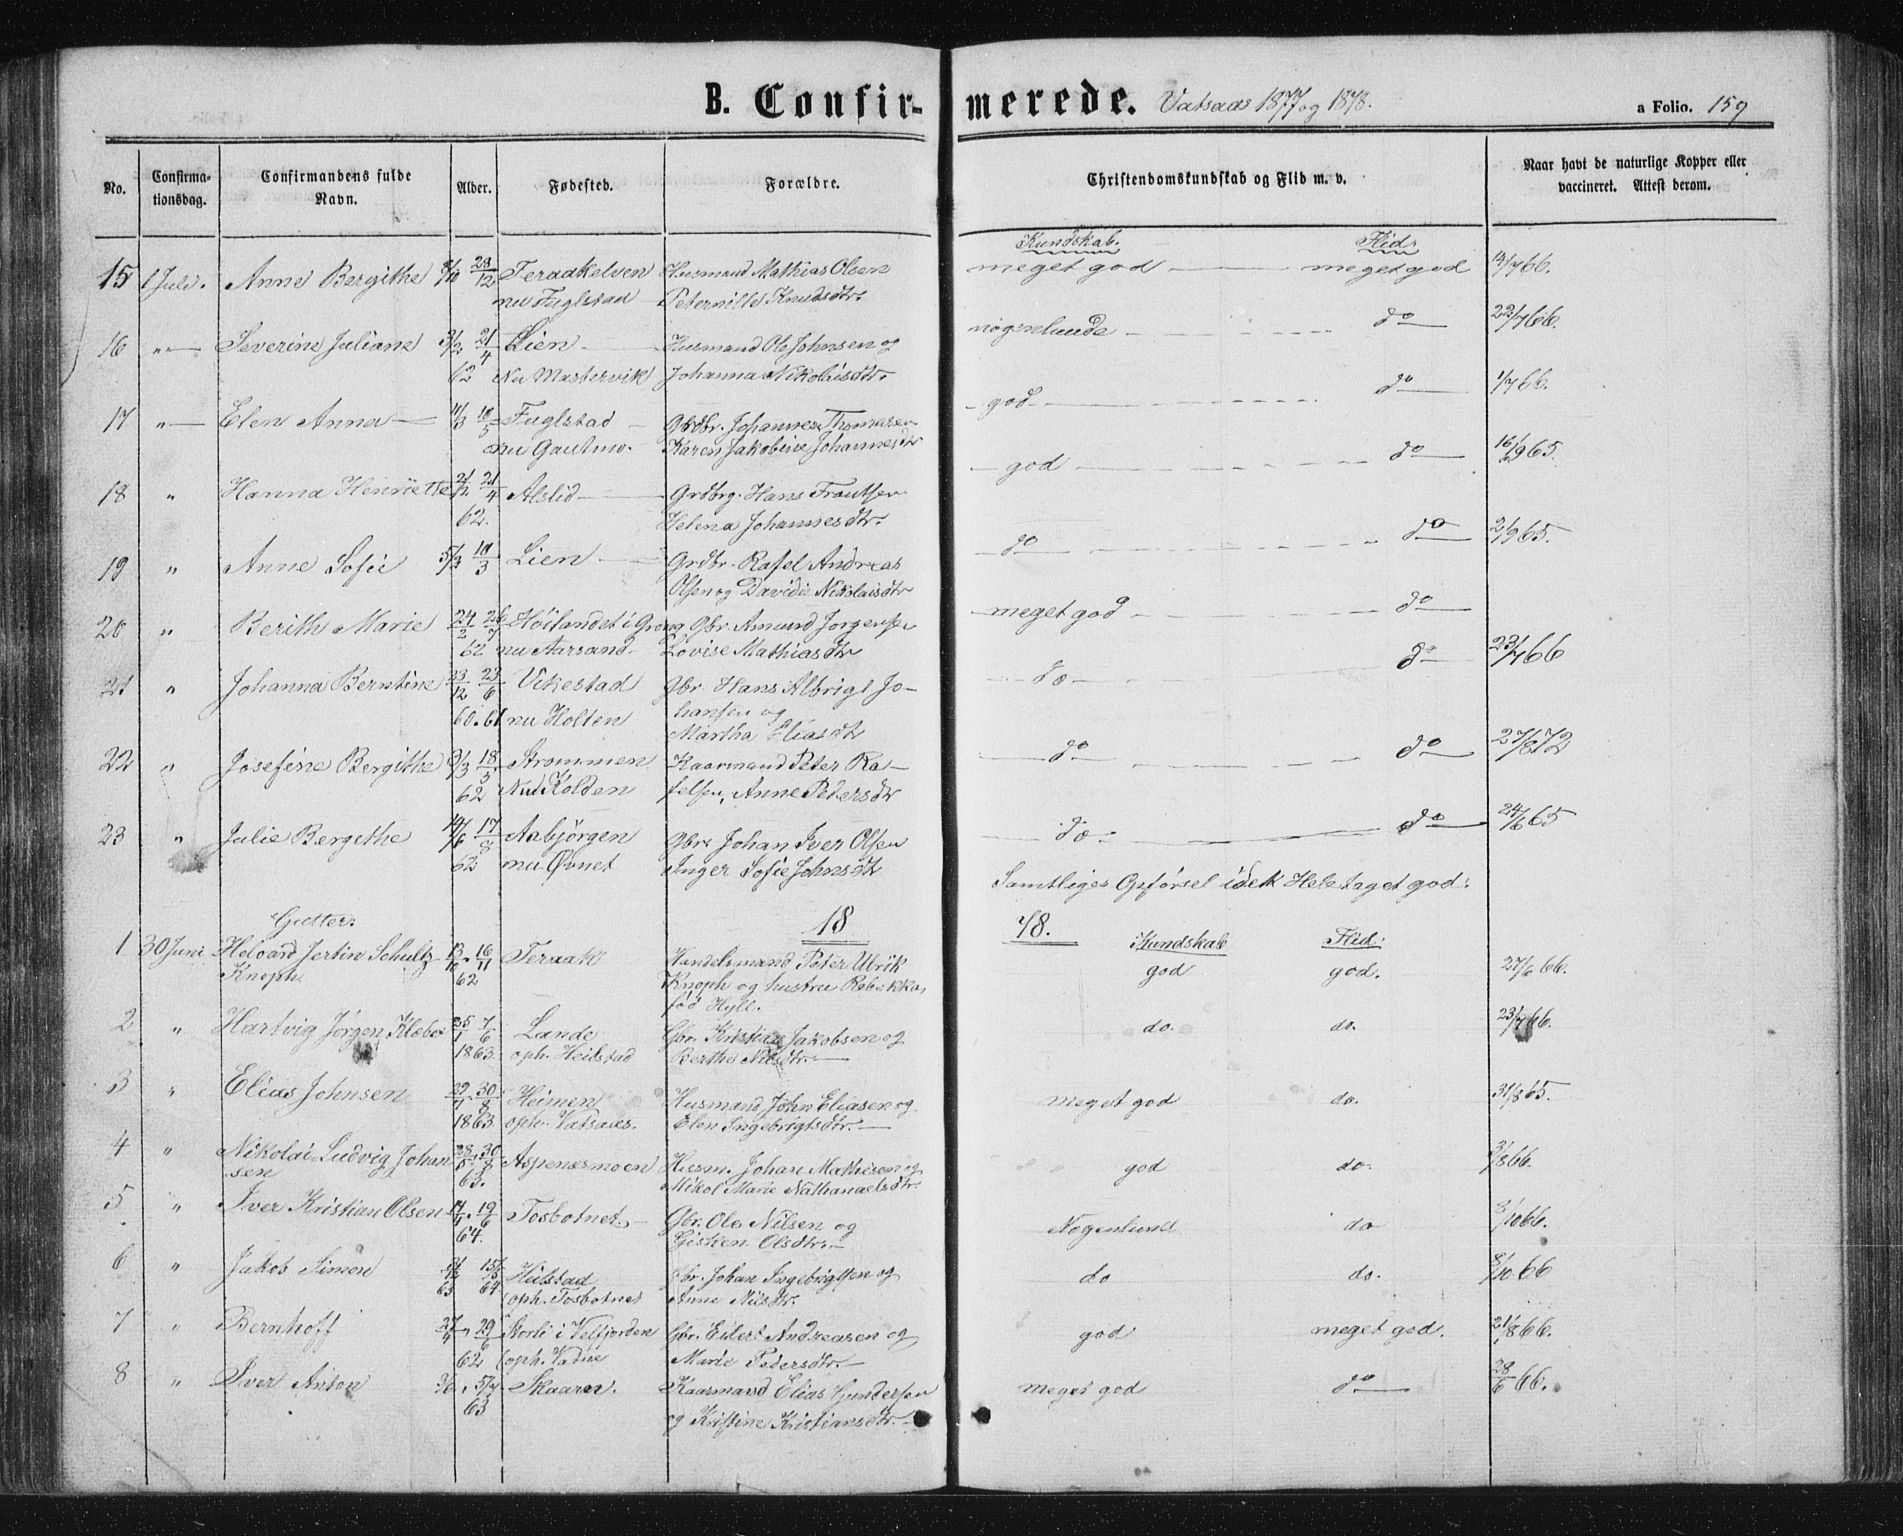 B. Confirmerede. Vatsaas 1877 og 1878. a Folio. 159
No. Confirmationsdag. Confirmandens fulde Navn. Alder. Fødested. Forældre. Christendomskundskab og Flid m. v. Naar havt de naturlige Kopper eller vaccineret. Attest derom.
Kundskab. Flid.
15 1 Juli. Anne Bergithe 23/12 Teraakelven Husmand Mathias Olsen meget god meget god 66.
nu Fuglstad Peternille Knudsdtr.
16 Severine Juliane 21/4 Lien Husmand Ole Johnsen og nogenlunde do 22/7 66.
62 Nu Mastervik Johanna Nikolaisdtr.
17 Elen Anna Fuglstad Grdbr. Johannes Thomasen god do 1/7 66.
nu Gautmo. Karen Jakobine Johannesdtr
18 " Hanna Henriette 21/4 Alslid Grdbrg. Hans Frantsen god do 16/9 65.
62. Helena Johannesdtr.
19 " Anne Sofie 5/3 18/3 Lien Grdbr. Rafel Andreas do do 2/9 65.
Olsen og Davidie Nikolaisdtr
20 " Berith Marie 24/2 26/7 Höilandet i Grong Gbr. Amund Jörgensen meget god do
62 nu Aarsand Lovise Mathiasdtr
21 " Johanna Berntine 23/12 23/6 Vikestad Gbr. Hans Albrigt Jo- do do 23/7 66
60. 61 nu Holten hansen og
Martha Eliasdtr
22 " Josefine Bergithe 18/5 Strommen Kaarmand Peter Ra- do do 27/8 72
62 Nu Kolden felsen, Anne Pedersdtr
23 " Julie Bergethe 14/6 17/8 Aabjörgen Gbr. Johan Iver Olsen do do 24/6 65
62 nu Øvnet Inger Sofie Johnsdtr
Samtliges Opförsel i det Hele taget god.
Gutter. 18 78. Kundskab Flid.
1 30 Juni Helvard Jertin Schultz 13/10 16/11 Teraak Handelsmand Peter Ulrik god god. 27/6 66.
Knoph. 62 Knoph og hustru Rebekka,
fød Hyll.
2 " Hartvig Jörgen Kleber 25/1 7/6 Lande Gbr. Kristian Jakobsen og do. do. 23/7 66.
1863. oph. Heilstad Berthe Nilsdtr.
3 " Elias Johnsen 29/7 30/8 Heimen Husmand John Eliasen og meget god do. 31/8 65.
1863. oph. Vatsaas. Elen Ingebrigtsdtr.
4 " Nikolai Ludvig Johan- 30/8 Aspenæsmoen Husm. Johan Mathisen og god do. 3/8 66.
sen 63. Nikol Marie Nathanaelsdtr.
5 " Iver Kristian Olsen 19/6 Tosbotnet Gbr. Ole Nilsen og Nogenlund do 66.
64. Gisken Olsdtr.
6 " Jakob Simon Heilstad Gbr. Johan Ingebrigtsen og do do. 66
63 64 oph. Tosbotnet Anne Nilsdtr.
7 " Bernhoff 27/4 29/6 Storli i Velfjorden Gbr. Eilert Andreasen og god meget god. 21/8 66.
62 oph. Vadne Marie Pedersdtr.
8 " Iver Anton 5/7 Skaaren. Kaarmand Elias Gundersen meget god do 28/6 66.
63 og Kristine Kristiansdtr.